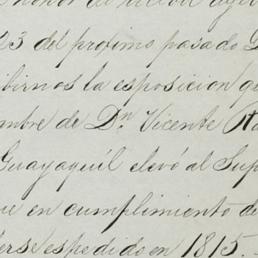 honor de
23 del proximo pasado D
cibirnos la esposicion qu
mbre de Dn Vicente
Guayaquíl elevó al Sup
ue en cumplimiento de
espedido en 1815.